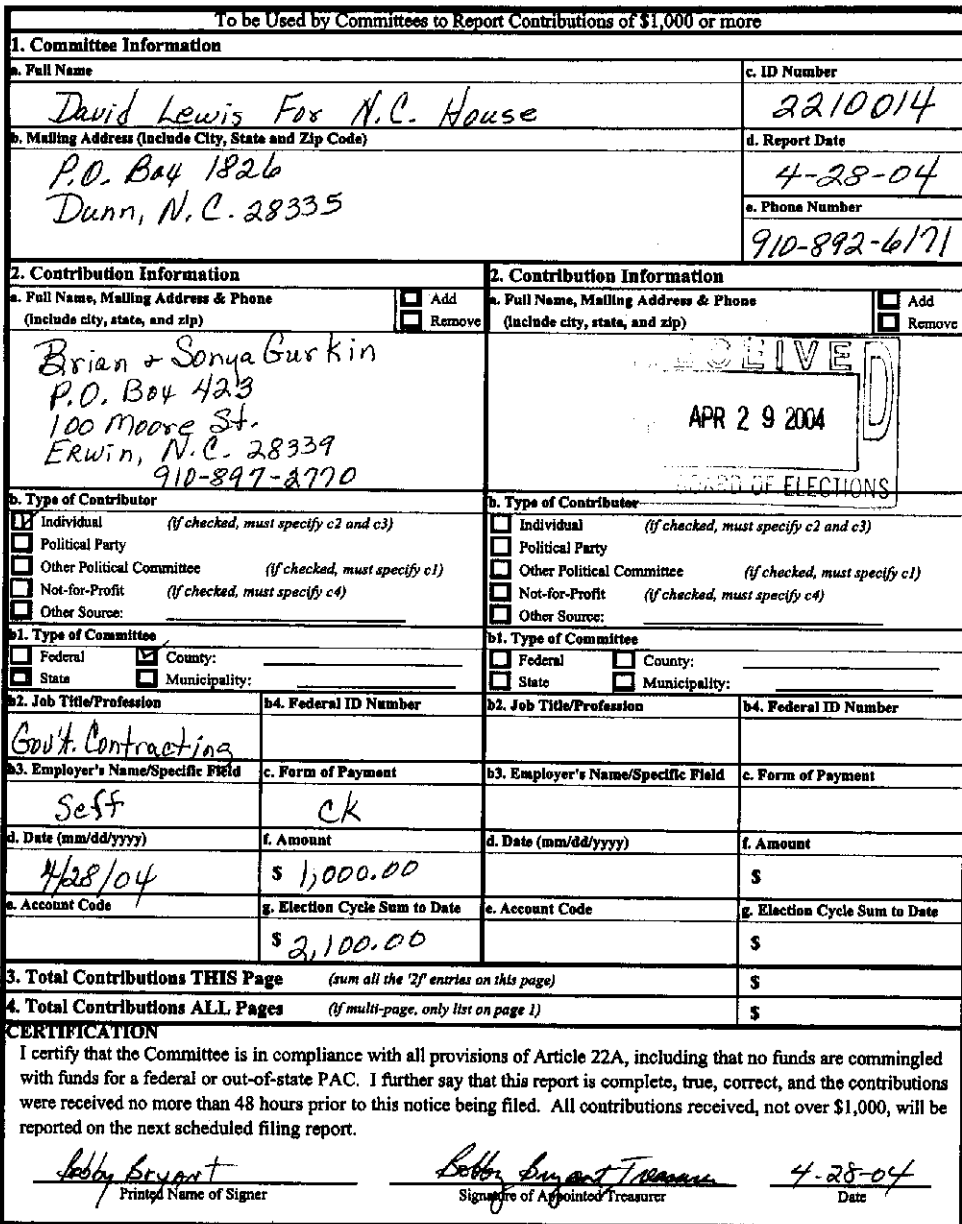 To be Used by Committees to Report Contributions of $1,000 or more
1. Committee Information
a. Full Name
c. ID Number
David Lewis For N.C. House
2210014
b. Mailing Address (include City, State and Zip Code)
d. Report Date
P.O. Box 1826
4-28-04
Dunn, N.C. 28335
e. Phone Number
910-892-6171
2. Contribution Information
a. Full Name, Mailing Address & Phone
(include city, state, and zip)
Add
Remove
Brian & Sonya Gurkin
P.O. Box 423
100 Moore St.
Erwin, N.C. 28339
910-897-2770
b. Type of Contributor
Individual (if checked, must specify c2 and c3)
Political Party
Other Political Committee (if checked, must specify c1)
Not-for-Profit (if checked, must specify c4)
Other Source:
b1. Type of Committee
Federal County:
State Municipality:
b2. Job Title/Profession
b4. Federal ID Number
Gov't. Contracting
b3. Employer's Name/Specific Field
c. Form of Payment
Self
ck
d. Date (mm/dd/yyyy)
f. Amount
4/28/04
$ 1,000.00
e. Account Code
g. Election Cycle Sum to Date
$ 2,100.00
2. Contribution Information
a. Full Name, Mailing Address & Phone
(include city, state, and zip)
Add
Remove
RECEIVED
APR 29 2004
BOARD OF ELECTIONS
b. Type of Contributor
Individual (if checked, must specify c2 and c3)
Political Party
Other Political Committee (if checked, must specify c1)
Not-for-Profit (if checked, must specify c4)
Other Source:
b1. Type of Committee
Federal County:
State Municipality:
b2. Job Title/Profession
b4. Federal ID Number
b3. Employer's Name/Specific Field
c. Form of Payment
d. Date (mm/dd/yyyy)
f. Amount
$
e. Account Code
g. Election Cycle Sum to Date
$
3. Total Contributions THIS Page (sum all the '2f' entries on this page) $
4. Total Contributions ALL Pages (if multi-page, only list on page 1) $
CERTIFICATION
I certify that the Committee is in compliance with all provisions of Article 22A, including that no funds are commingled
with funds for a federal or out-of-state PAC. I further say that this report is complete, true, correct, and the contributions
were received no more than 48 hours prior to this notice being filed. All contributions received, not over $1,000, will be
reported on the next scheduled filing report.
Bobby Bryant
Bobby Bryant Treasurer
4-28-04
Printed Name of Signer
Signature of Appointed Treasurer
Date